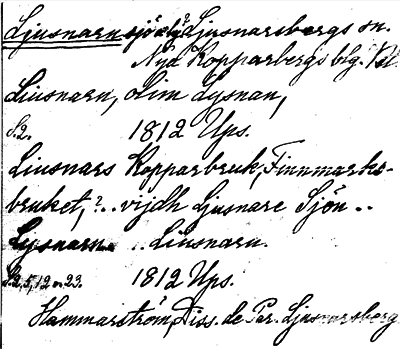 Ljusnarn sjö Ljusnarsbergs sn.
Nya Kopparbergs blg. Vsl.
Liusnarn, olim Lysnan,
S.2. 1812 Ups.
Liusnars Kopparbruk, Finnmarks-
bruket, ?.. vijdh Ljusnare Sjön ..
Lysnarn .. Liusnarn.
S.2, 5, 12 o. 23. 1812 Ups.
Hammarström, Diss. de Par. Ljusnarsberg